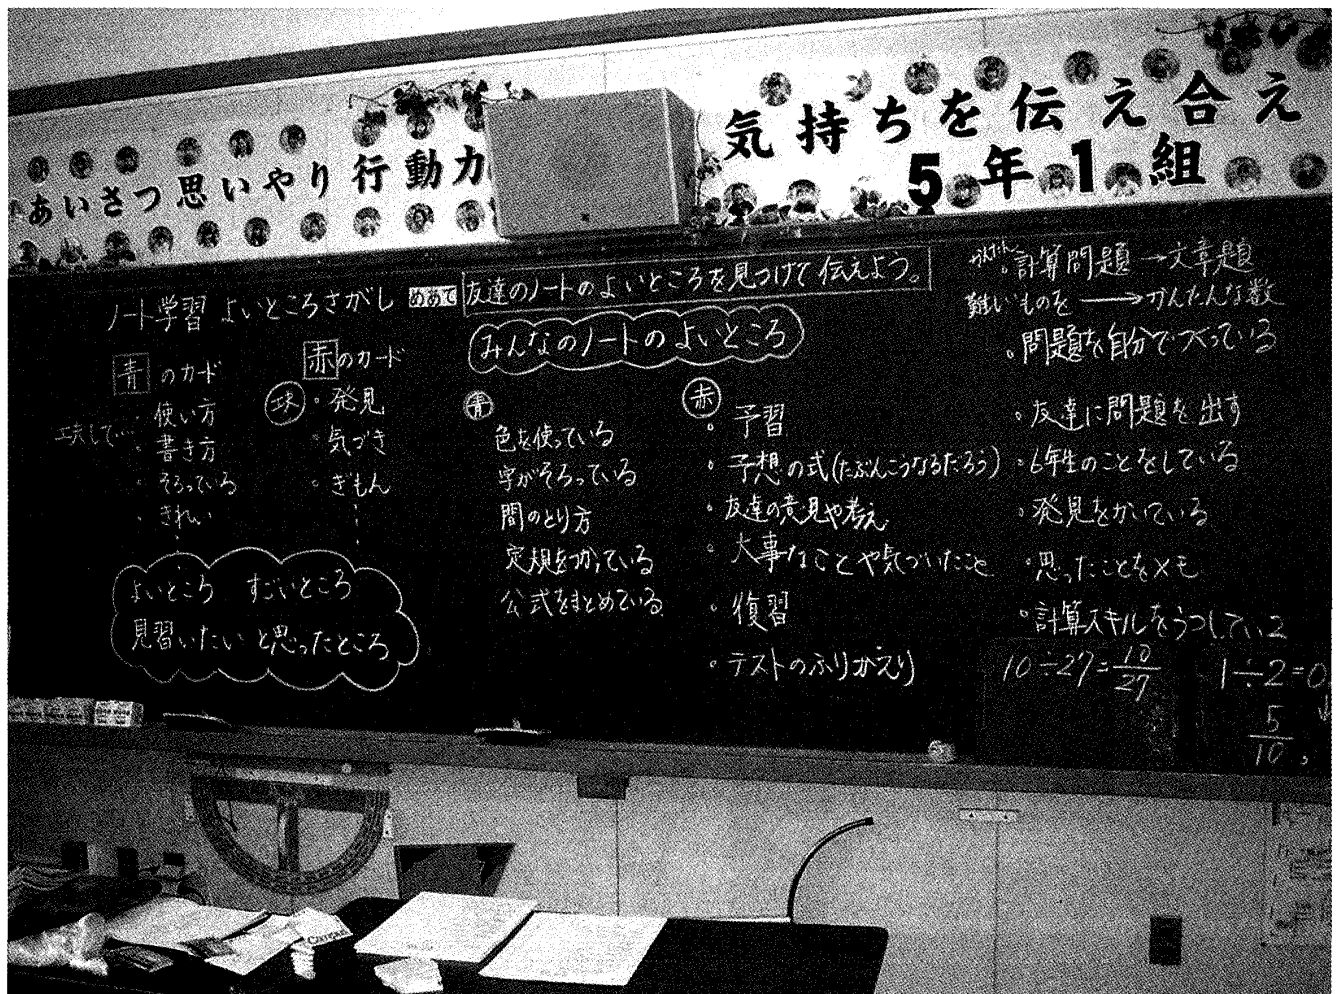 あいさつ思いやり行動力
気持ちを伝え合え
5年1組
ノート学習 よいところさがし
めあて 友達のノートのよいところを見つけて伝えよう。
青のカード
・使い方
・書き方
・そろっている
・きれい
赤のカード
・発見
・気づき
・ぎもん
よいところ すごいところ
見習いたいと思ったところ
みんなのノートのよいところ
青
色を使っている
字がそろっている
間のとり方
定規をつかっている
公式をまとめている
赤
・予習
・予想の式(たぶんこうなるだろう)
・友達の意見や考え
・大事なことや気づいたこと
・復習
・テストのふりかえり
・計算問題→文章題
難いものを→かんたんな数
・問題を自分でつくっている
・友達に問題を出す
・6年生のことをしている
・発見をかいている
・思ったことをメモ
・計算スキルをうつしている
10÷27=10/27
1÷2=0.
5/10
Campus